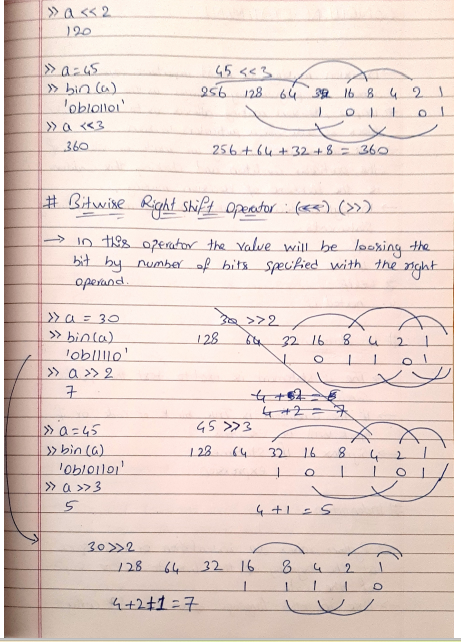 >> a << 2
120
>> a = 45
>> bin(a)
'0b101101'
>> a << 3
360
45 << 3
256 128 64 32 16 8 4 2 1
1 0 1 1 0 1
256 + 64 + 32 + 8 = 360
# Bitwise Right shift operator : (<<) (>>)
→ in this operator the value will be loosing the
bit by number of bits specified with the right
operand.
>> a = 30
>> bin(a)
'0b11110'
>> a >> 2
7
30 >> 2
128 64 32 16 8 4 2 1
1 0 1 1 0 1
4 + 2 = 7
>> a = 45
>> bin(a)
'0b101101'
>> a >> 3
5
45 >> 3
128 64 32 16 8 4 2 1
1 0 1 1 0 1
4 + 1 = 5
30 >> 2
128 64 32 16 8 4 2 1
1 1 1 1 0
4 + 2 + 1 = 7